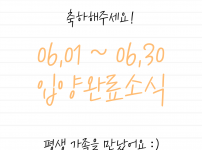 축하해주세요!
06.01 ~ 06.30
입양완료소식
평생 가족을 만났어요 :)